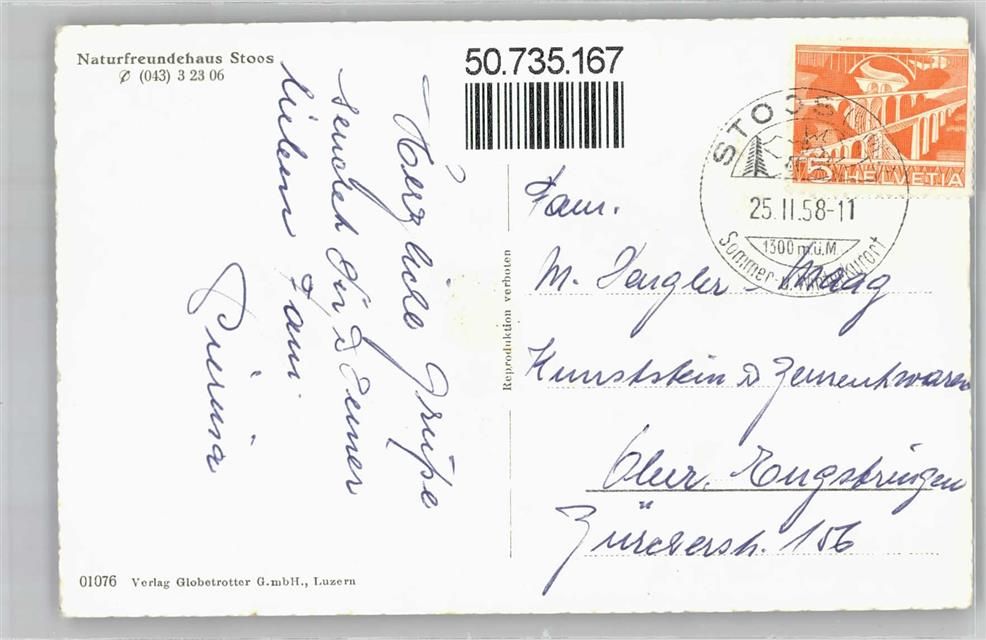 Naturfreundehaus Stoos
✆ (043) 3 23 06
50.735.167
STOOS
25.II.58-11
1300 m.ü.M.
Sommer- u. Winterkurort
5 HELVETIA
Herzliche Grüße
sendet Dir, & Deiner
lieben Fam.
Pierina
Reproduktion verboten
Fam.
M. Maag
Kunststein & Zementwaren
Ober. Engstringen
Zürcherstr. 156
01076 Verlag Globetrotter G.mbH., Luzern